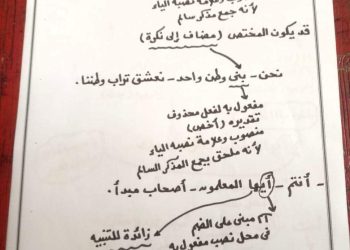 منصوب وعلامة نصبه الياء
لأنه جمع مذكر سالم
قد يكون المختص (مضاف إلى نكرة)
نحن - بنى وطن واحد - نعشق تراب وطننا.
مفعول به لفعل محذوف
تقديره (أخص)
منصوب وعلامة نصبه الياء
لأنه ملحق بجمع المذكر السالم
- أنتم - أيها المعلمون - أصحاب مبدأ.
مبنى على الضم
زائدة للتنبيه
فى محل نصب مفعول به